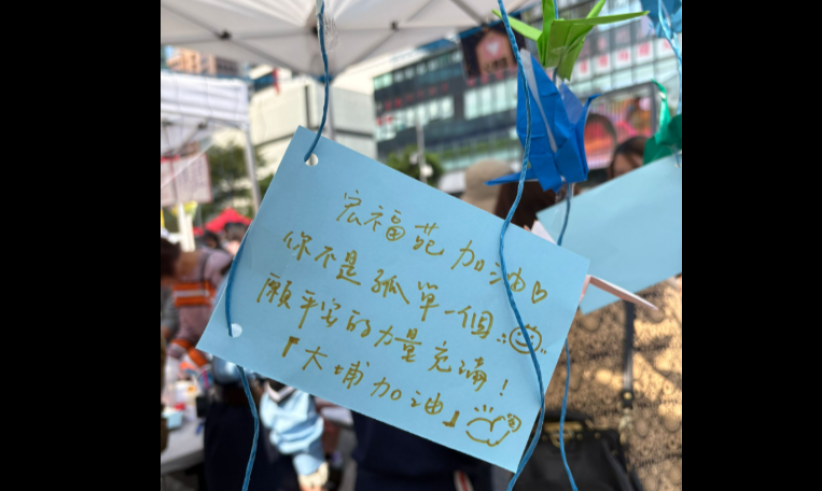 宏福苑加油♡
你不是孤單一個
願平安的力量充滿！
『大埔加油』